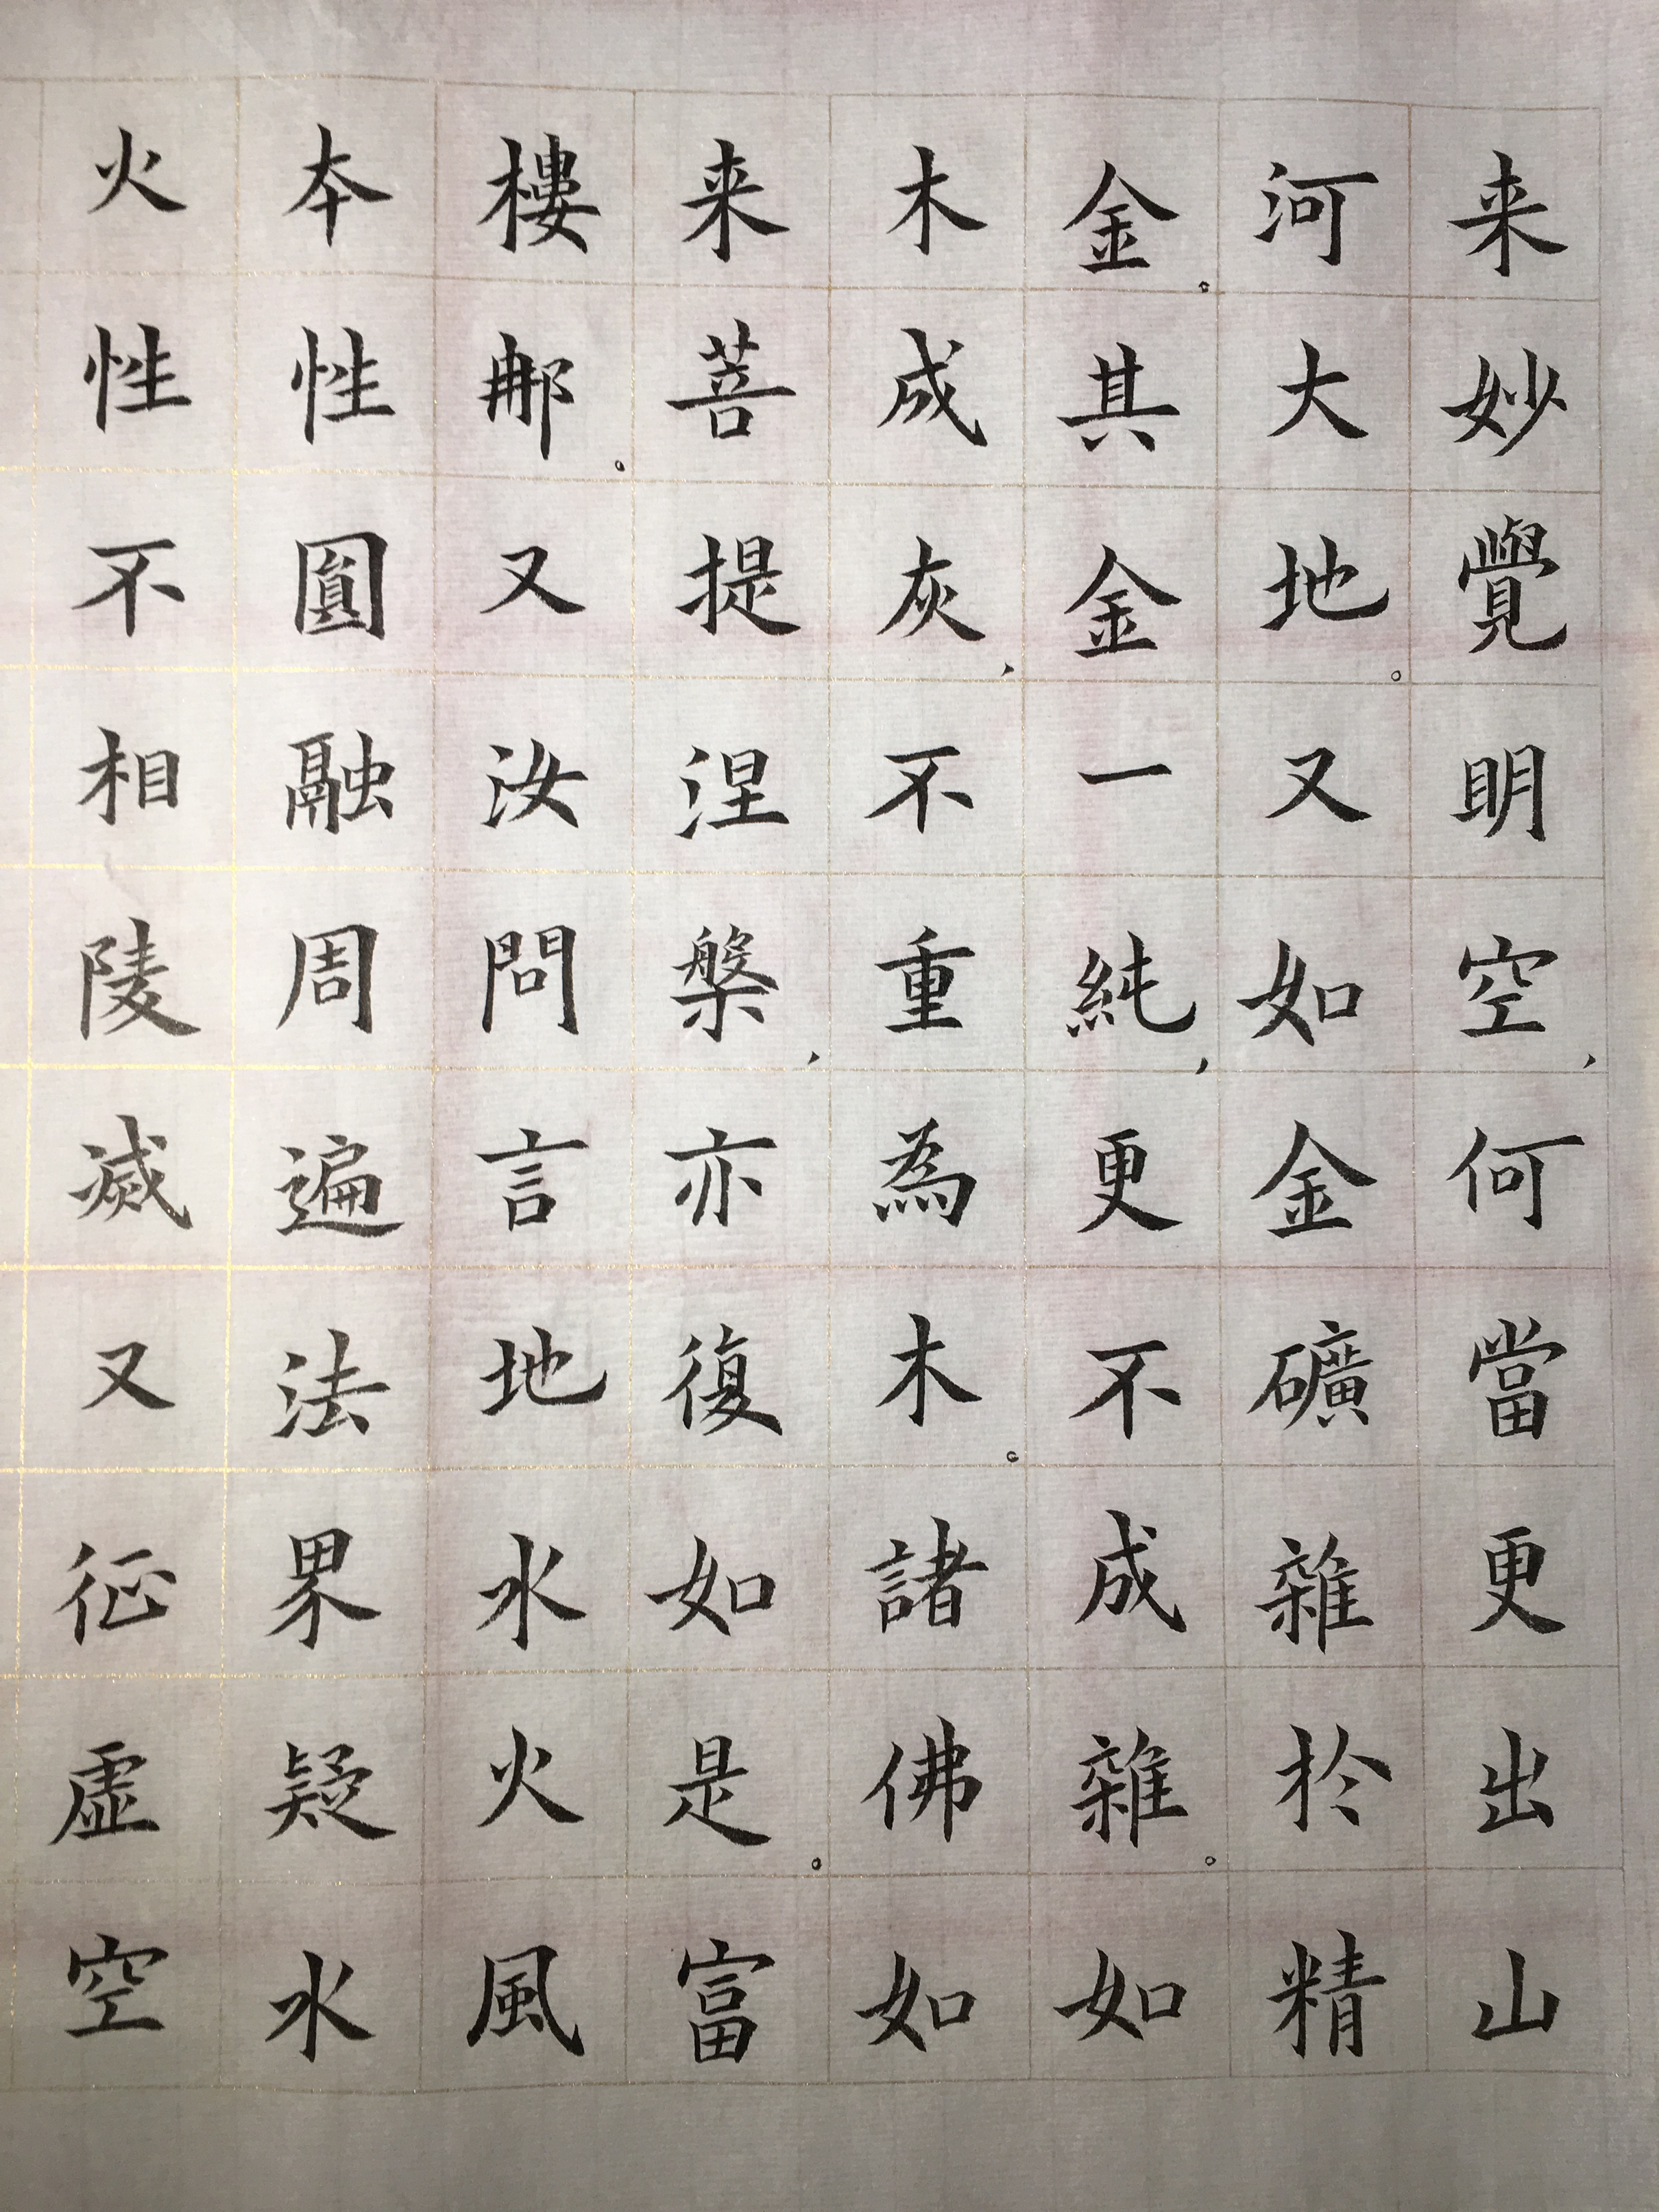 来妙覺明空，何當更出山
河大地。又如金礦雜於精
金。其金一純，更不成雜。如
木成灰，不重為木。諸佛如
来菩提涅槃，亦復如是。富
樓那。又汝問言地水火風
本性圓融周遍法界疑水
火性不相陵滅又征虛空